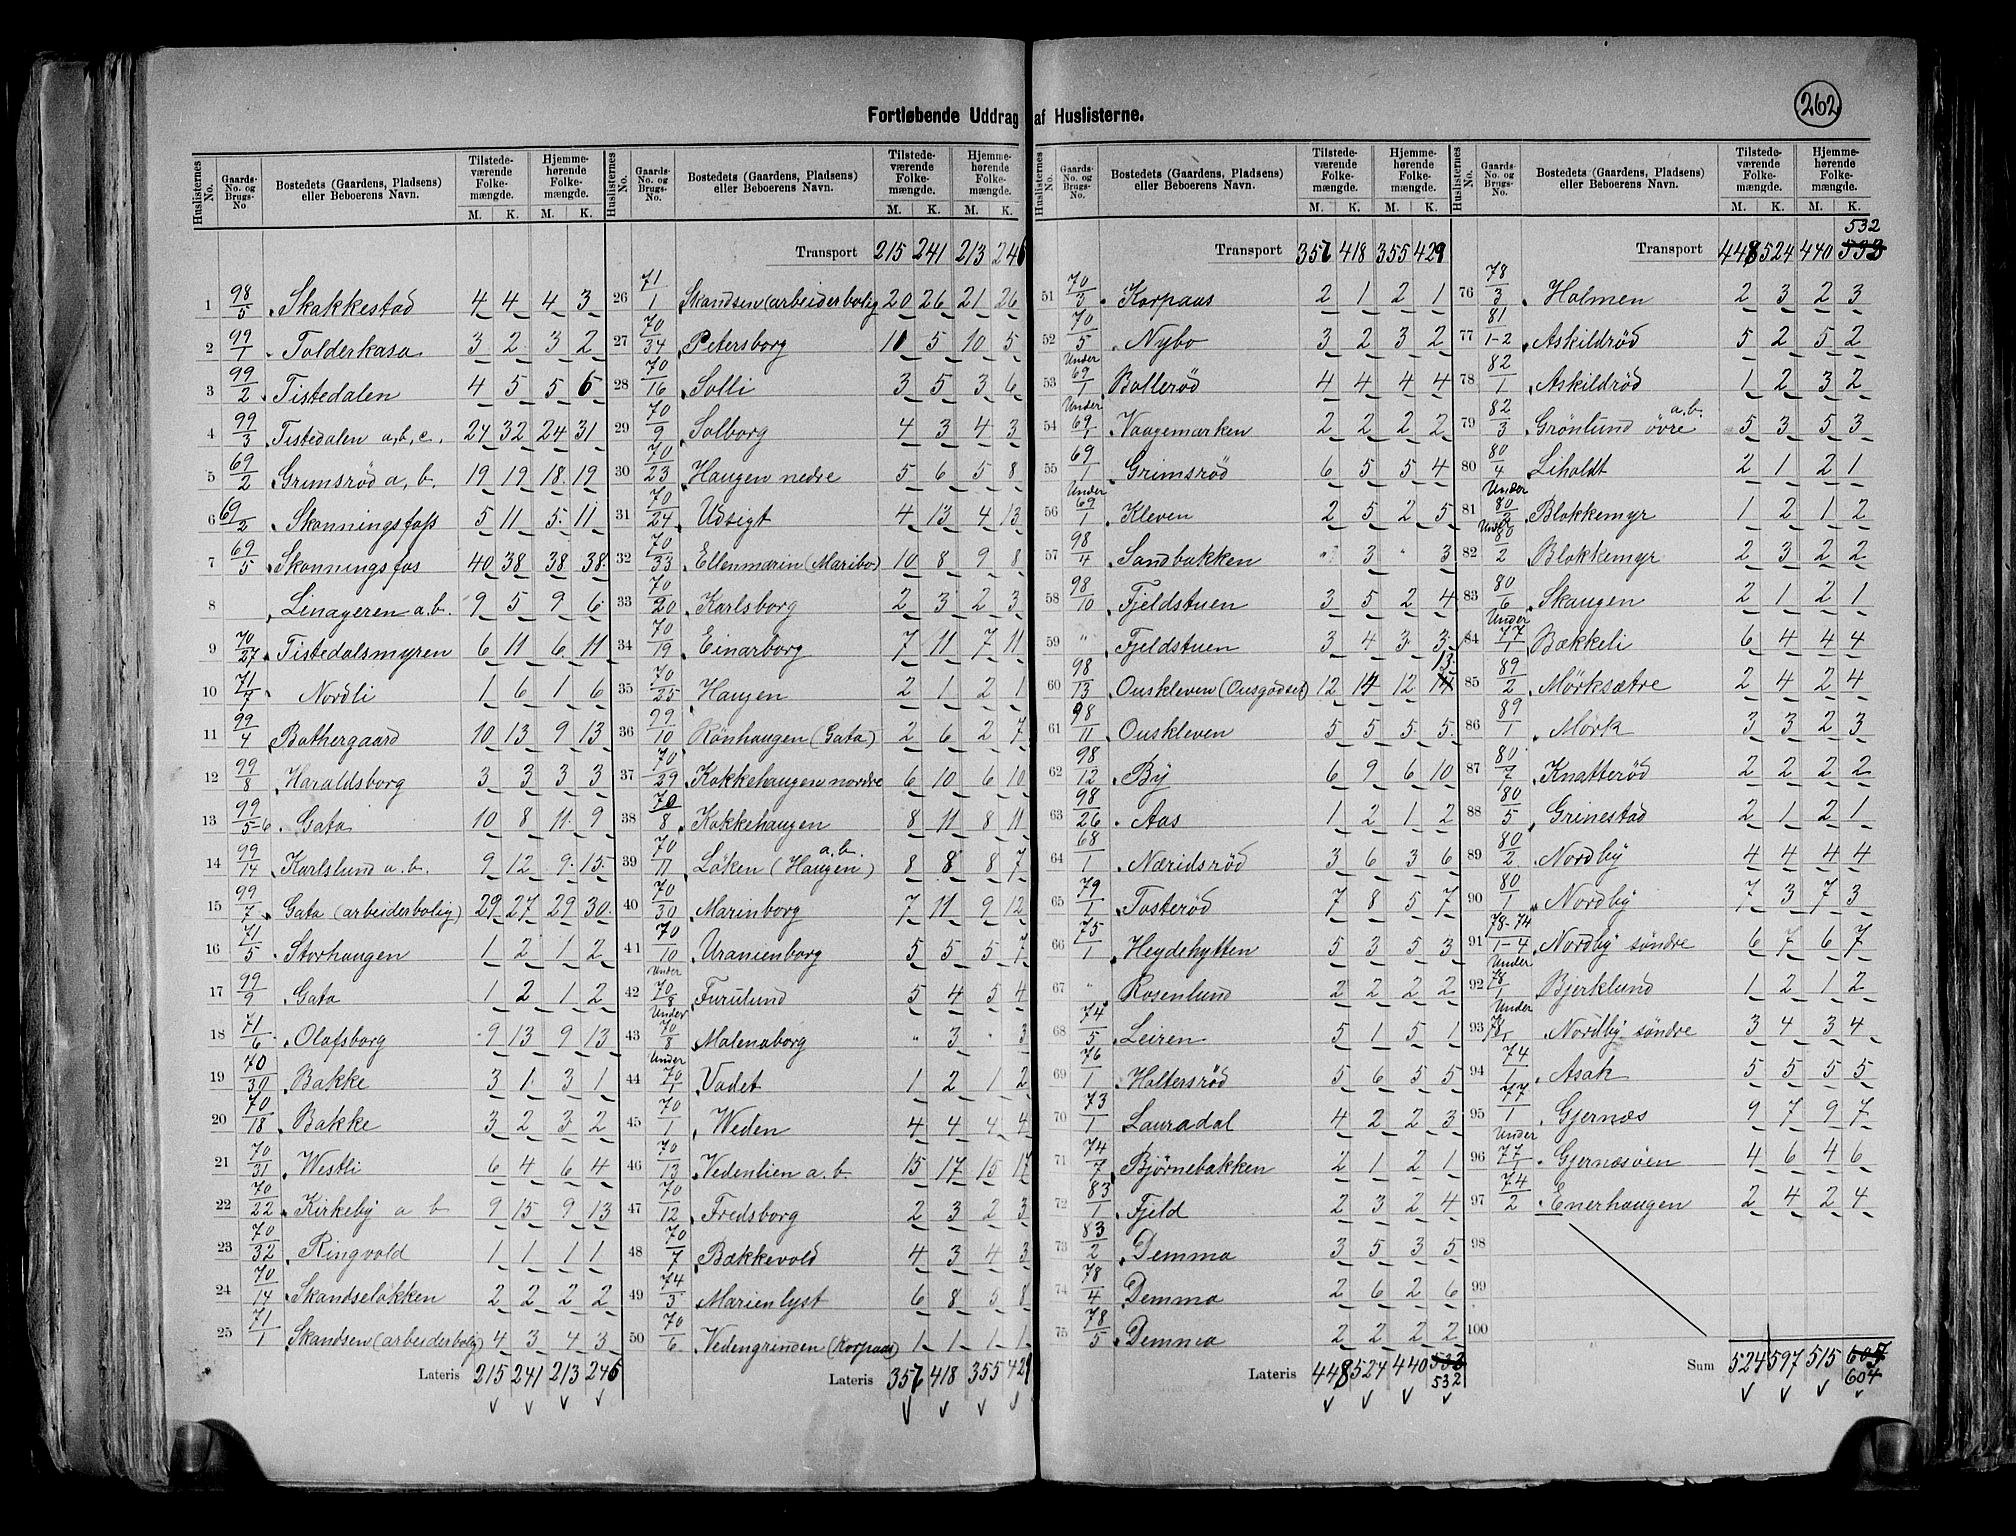 262
Fortløbende Uddrag af Huslisterne.
Huslisternes No. | Gaards- No. og Brugs- No. | Bostedets (Gaardens, Pladsens) eller Beboerens Navn. | Tilstede- værende Folke- mængde. M. K. | Hjemme- hørende Folke- mængde. M. K.
1 98/5 Skakkestad 4 4 4 3
2 99/1 Tolderkasa 3 2 3 2
3 99/2 Tistedalen 4 5 5 6
4 99/3 Tistedalen a, b, c. 24 32 24 31
5 69/2 Grimsrød a, b. 19 19 18 19
6 69/2 Skonningsfoss 5 11 5 11
7 69/5 Skonningsfos 40 38 38 38
8 Linageren a.b. 9 5 9 6
9 70/27 Tistedalsmyren 6 11 6 11
10 71/7 Nordli 1 6 1 6
11 99/4 Bothergaard 10 13 9 13
12 99/8 Haraldsborg 3 3 3 3
13 99/5-6 Gata 10 8 11 9
14 99/14 Karlslund a. b. 9 12 9 15
15 99/7 Gata (arbeiderbolig) 29 27 29 30
16 71/5 Storhaugen 1 2 1 2
17 99/9 Gata 1 2 1 2
18 71/6 Olafsborg 9 13 9 13
19 70/30 Bakke 3 1 3 1
20 70/18 Bakke 3 2 3 2
21 70/31 Westli 6 4 6 4
22 70/22 Kirkeby a b 9 15 9 13
23 70/32 Ringvold 1 1 1 1
24 70/14 Skandseløkken 2 2 2 2
25 71/1 Skandsen (arbeiderbolig) 4 3 4 3
Lateris 215 241 213 246
Huslisternes No. | Gaards- No. og Brugs- No. | Bostedets (Gaardens, Pladsens) eller Beboerens Navn. | Tilstede- værende Folke- mængde. M. K. | Hjemme- hørende Folke- mængde. M. K.
Transport 215 241 213 246
26 71/1 Skandsen (arbeiderbolig 20 26 21 26
27 70/34 Petersborg 11 5 10 5
28 70/16 Solli 3 5 3 6
29 70/9 Solborg 4 3 4 3
30 70/23 Haugen nedre 5 6 5 8
31 70/24 Udsigt 4 13 4 13
32 70/33 Ellenmarin (Maribo) 10 8 9 8
33 70/20 Karlsborg 2 3 2 3
34 70/19 Einarborg 7 11 7 11
35 70/25 Haugen 2 1 2 1
36 99/10 Rönhaugen (Gata) 2 6 2 7
37 70/29 Kokkehaugen nordre 6 10 6 10
38 70/8 Kokkehaugen 8 11 8 11
39 70/11 Løken (Haugen) a, b. 8 8 8 7
40 70/30 Marinborg 7 11 9 12
41 70/10 Uranienborg 5 5 5 7
42 Under 70/8 Furulund 5 4 5 4
43 Under 70/8 Malenaborg " 3 " 3
44 Under 70/1 Vadet 1 2 1 2
45 70/1 Weden 4 4 4 4
46 70/13 Vedenlien a. b. 15 17 15 17
47 70/12 Fredsborg 2 3 2 3
48 70/7 Bækkevold 4 3 4 3
49 74/3 Marienlyst 6 8 5 8
50 70/6 Vedengrinden (Korpaas) 1 1 1 1
Lateris 357 418 355 429
Huslisternes No. | Gaards- No. og Brugs- No. | Bostedets (Gaardens, Pladsens) eller Beboerens Navn. | Tilstede- værende Folke- mængde. M. K. | Hjemme- hørende Folke- mængde. M. K.
Transport 357 418 355 429
51 70/3 Korpaas 2 1 2 1
52 70/5 Nybo 3 2 3 2
53 Under 69/1 Bollerød 4 4 4 4
54 Under 69/1 Vaagemarken 2 2 2 2
55 69/1 Grimsrød 6 5 5 4
56 Under 69/1 Kleven 2 5 2 5
57 98/4 Sandbakken " 3 " 3
58 98/10 Fjeldstuen 3 5 2 4
59 " Fjeldstuen 3 4 3 3
60 98/13 Ouskleven (Ousgodset) 12 14 12 14 13
61 98/11 Ouskleven 5 5 5 5
62 98/12 By 6 9 6 10
63 98/26 Aas 1 2 1 2
64 68/1 Næridsrød 3 6 3 6
65 79/1 Tosterød 7 8 5 7
66 75/1 Heydehytten 5 3 5 3
67 " Rosenlund 2 2 2 2
68 74/5 Leiren 5 1 5 1
69 76/1 Holtersrød 5 6 5 5
70 73/1 Lauradal 4 2 2 3
71 74/7 Bjørnebakken 2 1 2 1
72 83/1 Fjeld 2 3 2 4
73 83/2 Demma 3 5 3 5
74 78/4 Demma 2 6 2 6
75 78/5 Demma 2 2 2 2
Lateris 448 524 440 533 532
Huslisternes No. | Gaards- No. og Brugs- No. | Bostedets (Gaardens, Pladsens) eller Beboerens Navn. | Tilstede- værende Folke- mængde. M. K. | Hjemme- hørende Folke- mængde. M. K.
Transport 448 524 440 533 532
76 78/3 Holmen 2 3 2 3
77 81/1-2 Askildrød 5 2 5 2
78 82/1 Askildrød 1 2 3 2
79 82/3 Grönlund övre a, b. 5 3 5 3
80 80/4 Liholdt 2 1 2 1
81 Under 80/3 Blokkemyr 1 2 1 2
82 Under 80/2 Blokkemyr 2 3 2 2
83 80/6 Skaugen 2 1 2 1
84 Under 77/1 Bækkeli 6 4 4 4
85 89/2 Mørksætre 2 4 2 4
86 89/1 Mørk 3 3 2 3
87 80/7 Knatterød 2 2 2 2
88 80/5 Grinestad 2 1 2 1
89 80/2 Nordby 4 4 4 4
90 80/1 Nordby 7 3 7 3
91 78-74/1-4 Nordby søndre 6 7 6 7
92 Under 78/1 Bjerklund 1 2 1 2
93 Under 78/1 Nordby søndre 3 4 3 4
94 74/1 Asak 5 5 5 5
95 77/1 Gjernæs 9 7 9 7
96 Under 77/1 Gjernæsöen 4 6 4 6
97 74/2 Enerhaugen 2 4 2 4
98
99
100
Sum 524 597 515 605 604